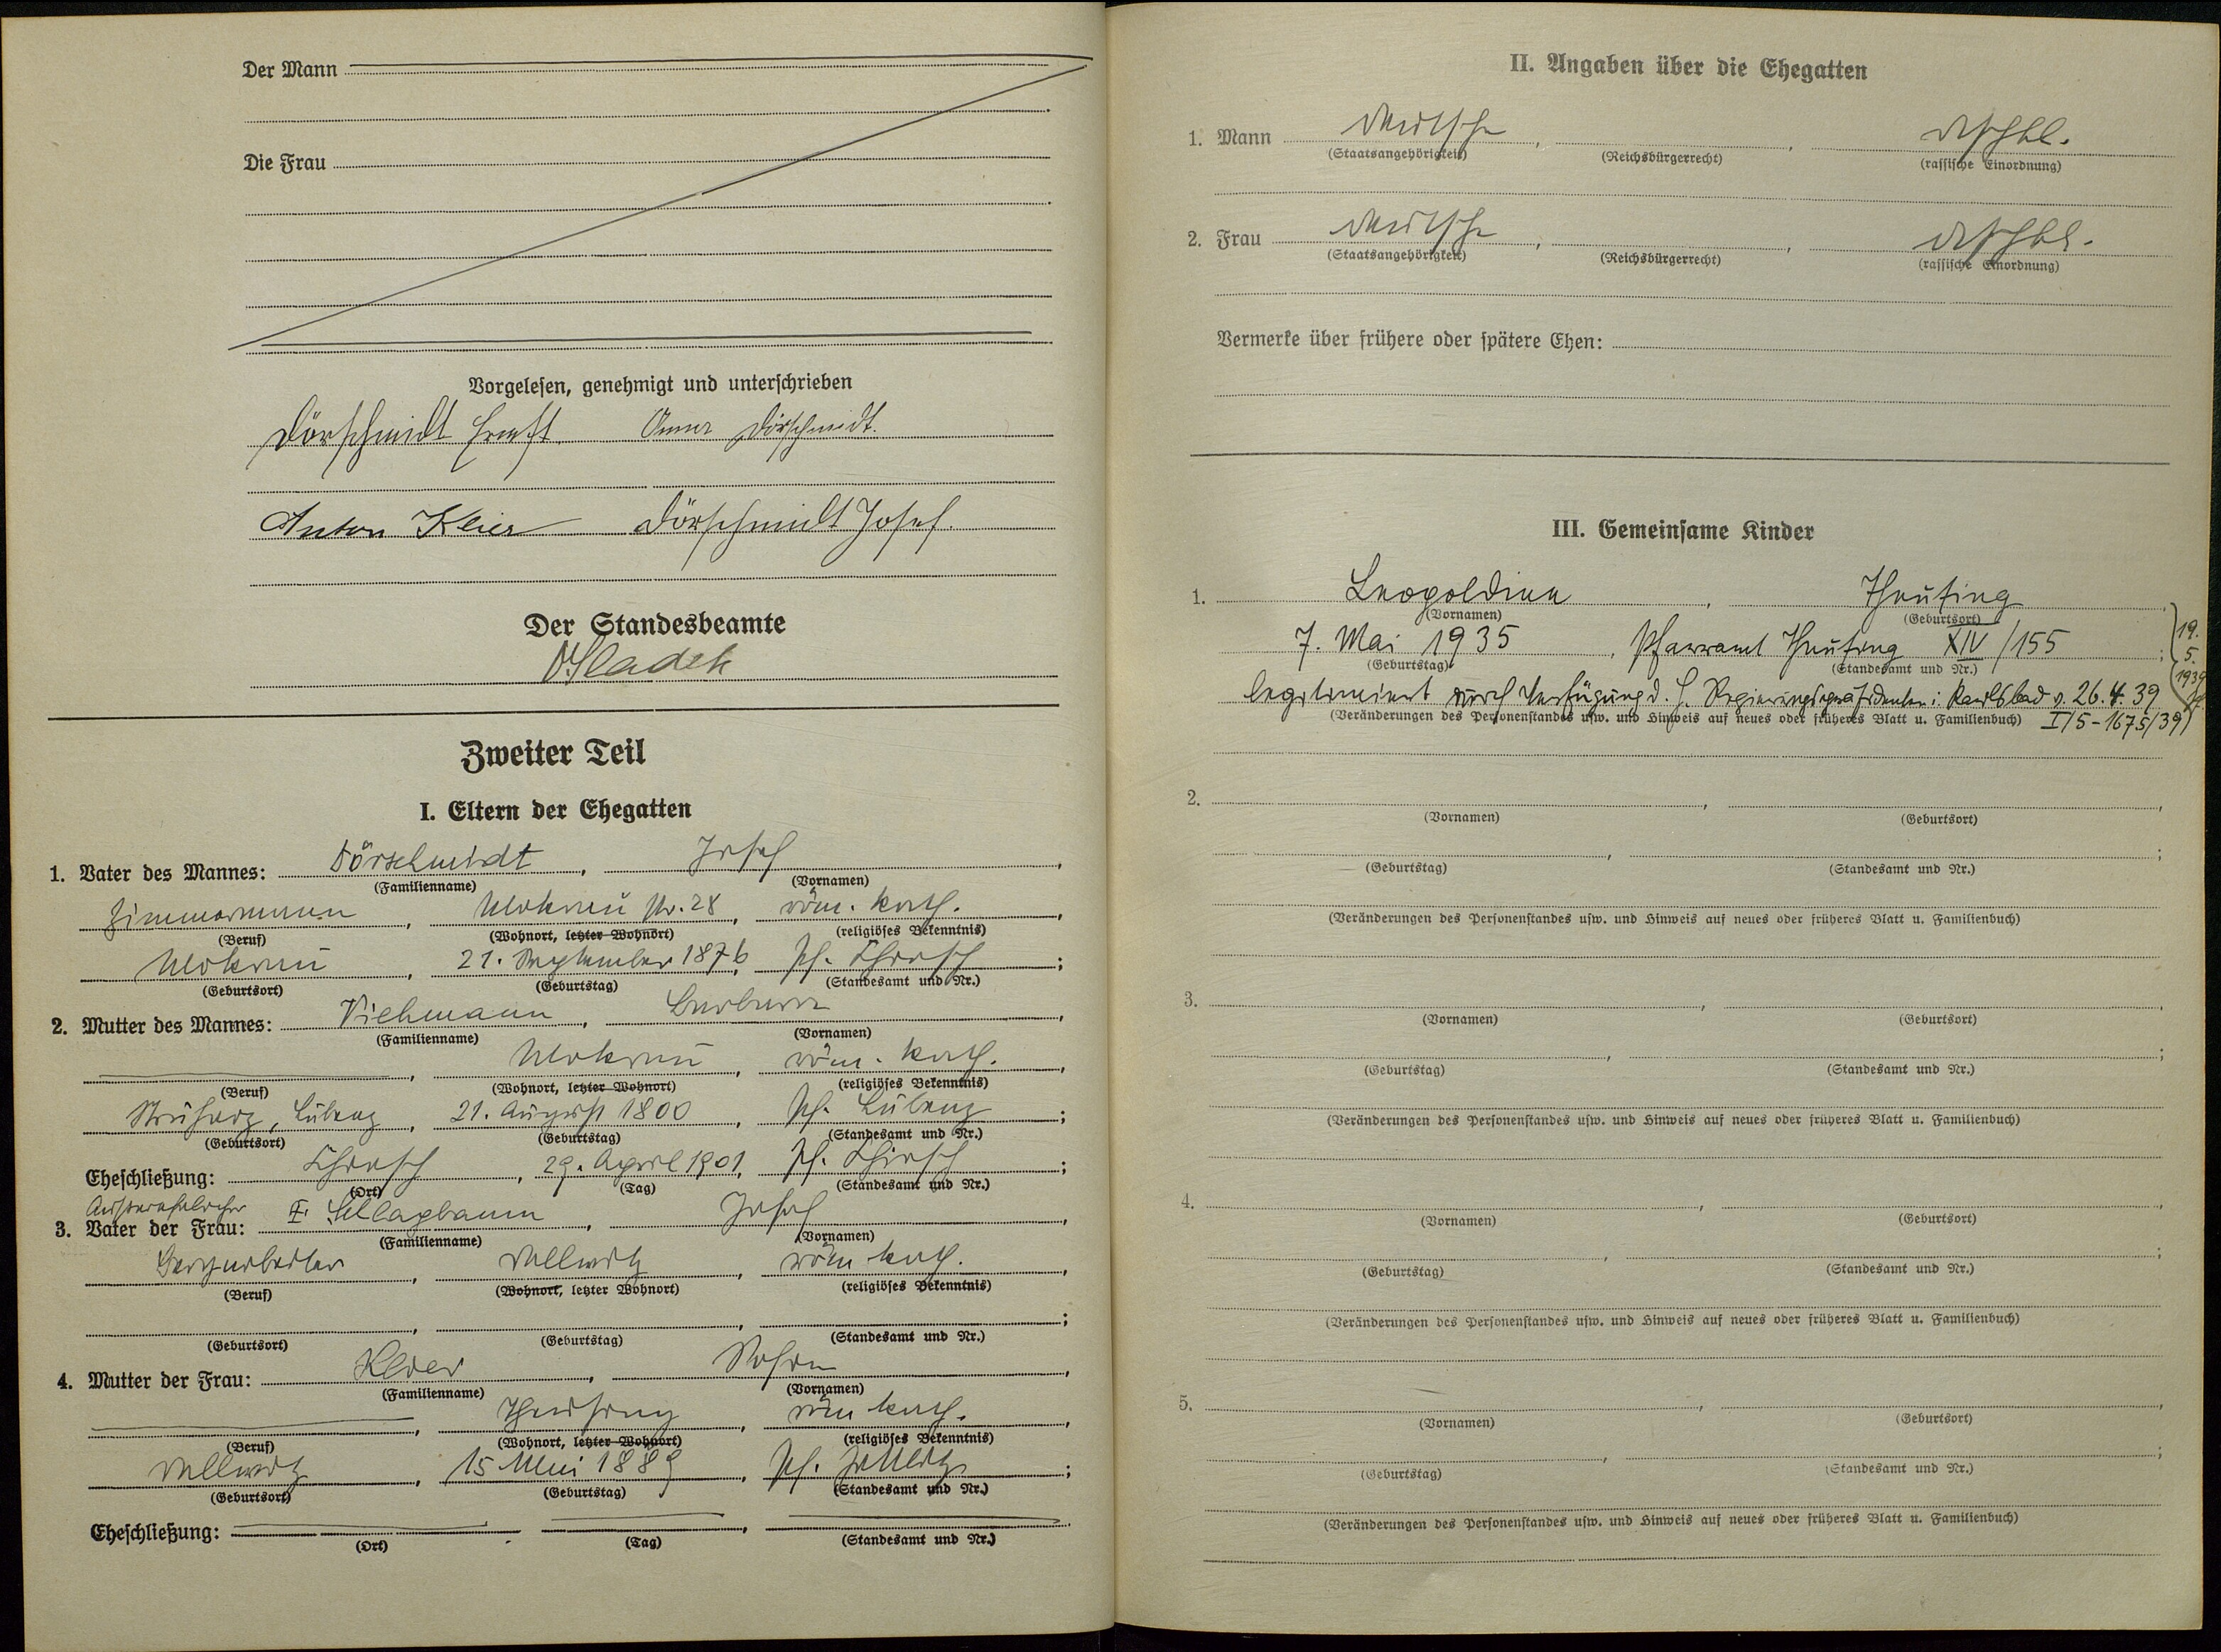 Der Mann
Die Frau
Vorgelesen, genehmigt und unterschrieben
Dörschmidt Ernst Anna Dörschmidt.
Anton Kleier Dörschmidt Josef.
Der Standesbeamte
Sladek
Zweiter Teil
I. Eltern der Ehegatten
1. Vater des Mannes: Dörschmidt, Josef,
(Familienname) (Vornamen)
Zimmermann, Mokrau Nr. 28, röm. kath.,
(Beruf) (Wohnort, letzter Wohnort) (religiöses Bekenntnis)
Mokrau, 21. September 1876, Pf. Chiesch;
(Geburtsort) (Geburtstag) (Standesamt und Nr.)
2. Mutter des Mannes: Viehmann, Barbara,
(Familienname) (Vornamen)
, Mokrau, röm. kath.,
(Beruf) (Wohnort, letzter Wohnort) (religiöses Bekenntnis)
Lubenz, 21. August 1800, Pf. Lubenz;
(Geburtsort) (Geburtstag) (Standesamt und Nr.)
Eheschließung: Chiesch, 29. April 1901, Pf. Chiesch;
(Ort) (Tag) (Standesamt und Nr.)
Ausserehelicher
3. Vater der Frau: Schlagbaum, Josef,
(Familienname) (Vornamen)
Bergarbeiter, Wellwitz, röm kath.,
(Beruf) (Wohnort, letzter Wohnort) (religiöses Bekenntnis)
(Geburtsort) (Geburtstag) (Standesamt und Nr.)
4. Mutter der Frau: Kleier, Rosa,
(Familienname) (Vornamen)
, Theusing, röm kath.,
(Beruf) (Wohnort, letzter Wohnort) (religiöses Bekenntnis)
Wellwitz, 15 Mai 1889, Pf.;
(Geburtsort) (Geburtstag) (Standesamt und Nr.)
Eheschließung:
(Ort) (Tag) (Standesamt und Nr.)
II. Angaben über die Ehegatten
1. Mann deutsche, , dtschbl.
(Staatsangehörigkeit) (Reichsbürgerrecht) (rassische Einordnung)
2. Frau deutsche, , dtschbl.
(Staatsangehörigkeit) (Reichsbürgerrecht) (rassische Einordnung)
Vermerke über frühere oder spätere Ehen:
III. Gemeinsame Kinder
1. Leopoldine, Theusing
(Vornamen) (Geburtsort)
7. Mai 1935, Pfarramt Theusing XIV/155; 19. 5. 1939
(Geburtstag) (Standesamt und Nr.)
legitimiert durch Verfügung d. H. Regierungspräsidenten i. Karlsbad v. 26.4.39
(Veränderungen des Personenstandes usw. und Hinweis auf neues oder früheres Blatt u. Familienbuch) I/5-1675/39)
2.
(Vornamen) (Geburtsort)
(Geburtstag) (Standesamt und Nr.)
(Veränderungen des Personenstandes usw. und Hinweis auf neues oder früheres Blatt u. Familienbuch)
3.
(Vornamen) (Geburtsort)
(Geburtstag) (Standesamt und Nr.)
(Veränderungen des Personenstandes usw. und Hinweis auf neues oder früheres Blatt u. Familienbuch)
4.
(Vornamen) (Geburtsort)
(Geburtstag) (Standesamt und Nr.)
(Veränderungen des Personenstandes usw. und Hinweis auf neues oder früheres Blatt u. Familienbuch)
5.
(Vornamen) (Geburtsort)
(Geburtstag) (Standesamt und Nr.)
(Veränderungen des Personenstandes usw. und Hinweis auf neues oder früheres Blatt u. Familienbuch)